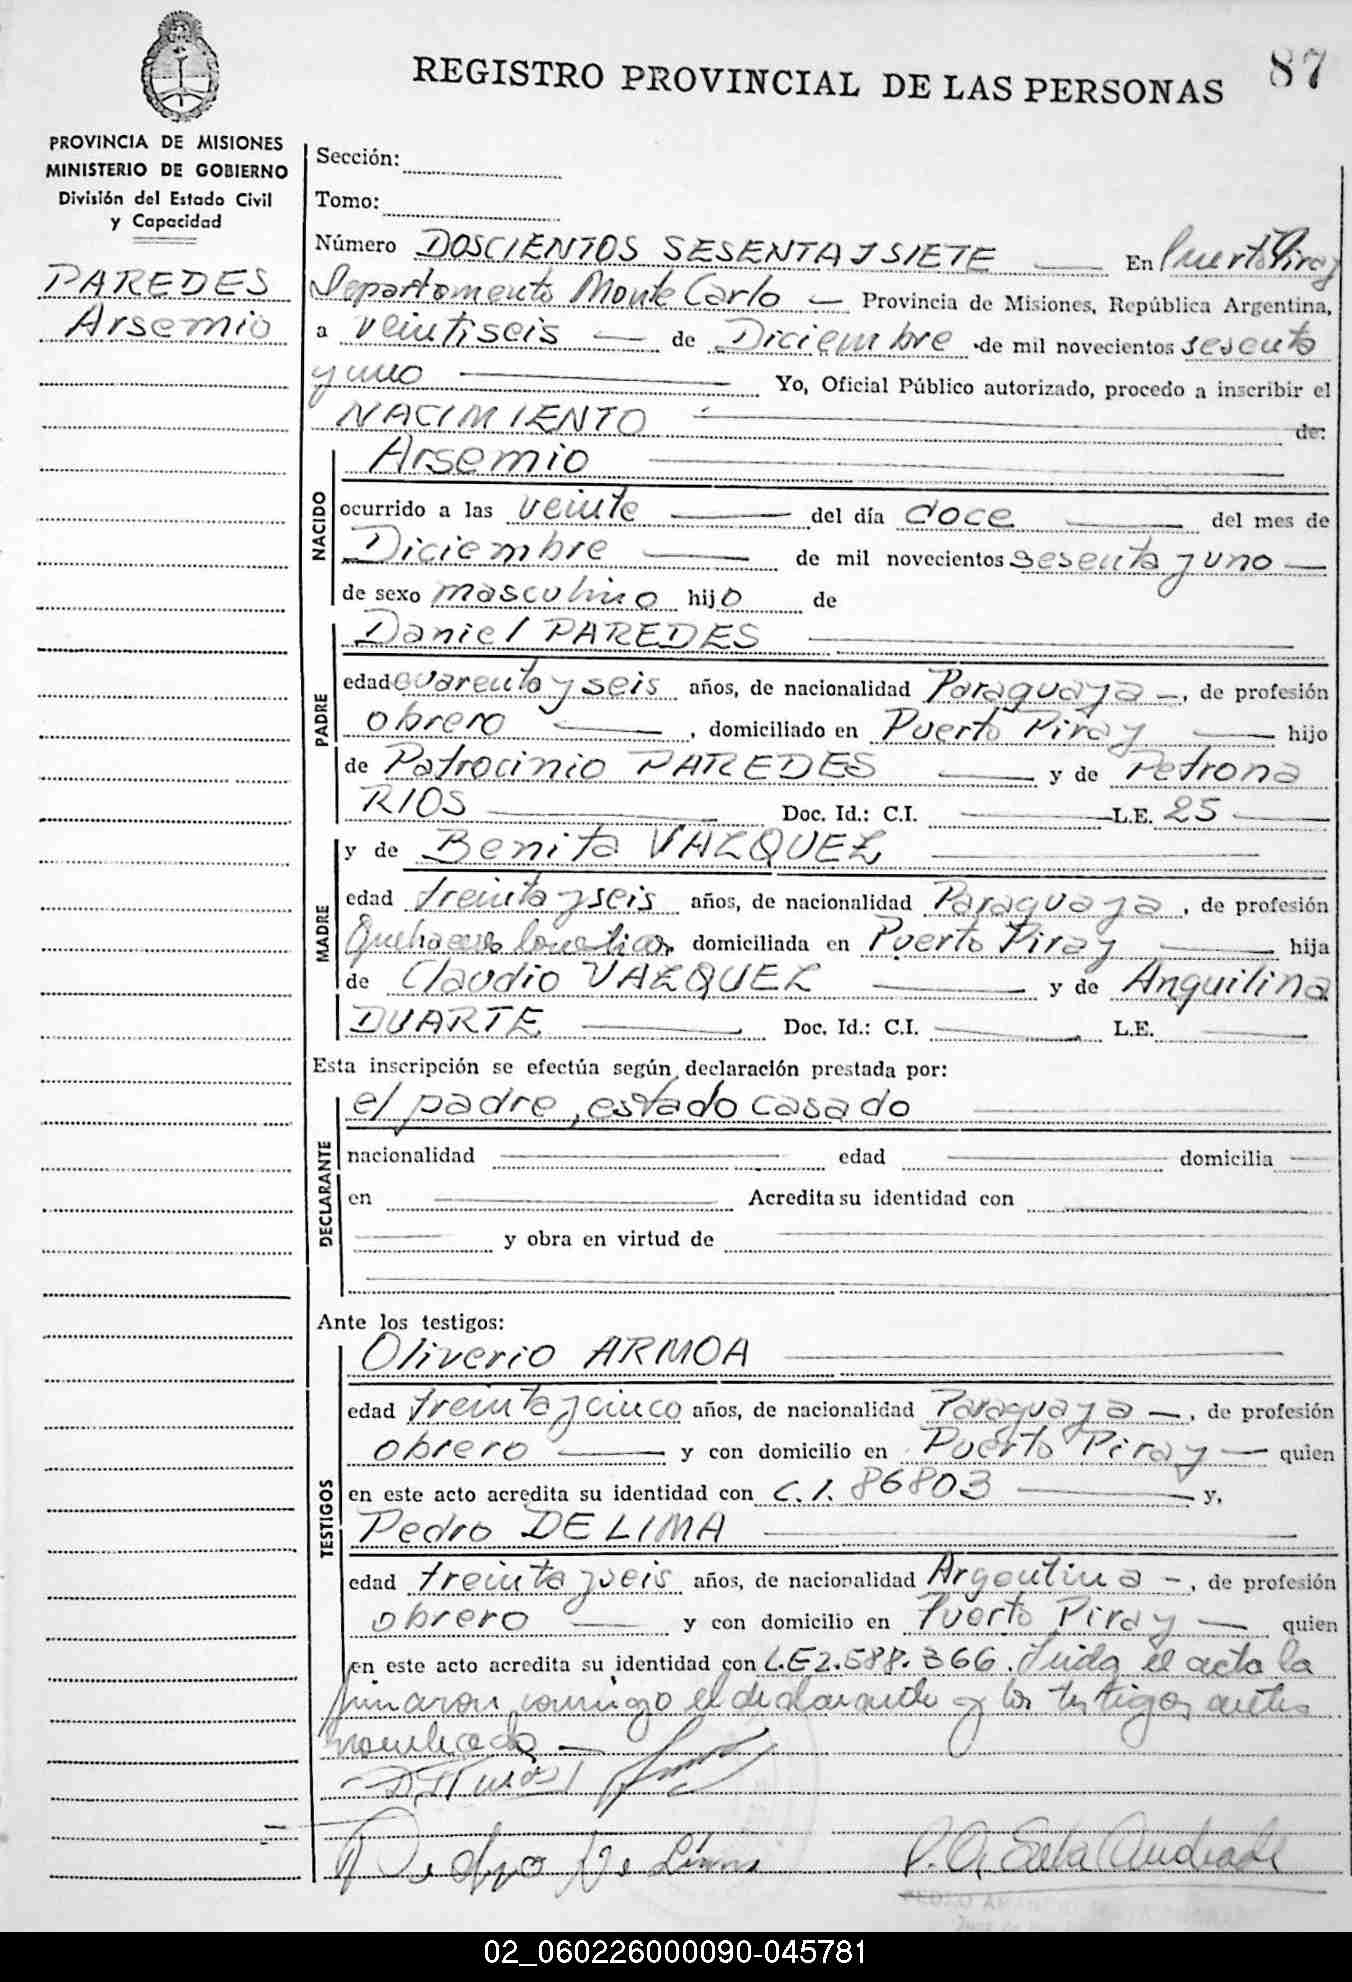 REGISTRO PROVINCIAL DE LAS PERSONAS
87
PROVINCIA DE MISIONES
MINISTERIO DE GOBIERNO
División del Estado Civil
y Capacidad
PAREDES
Arsemio
Sección:
Tomo:
Número DOSCIENTOS SESENTA Y SIETE En Puerto Piray
Departamento Monte Carlo Provincia de Misiones, República Argentina,
a veintiseis de Diciembre de mil novecientos sesenta
y uno Yo, Oficial Público autorizado, procedo a inscribir el
NACIMIENTO de:
NACIDO
Arsemio
ocurrido a las veinte del día doce del mes de
Diciembre de mil novecientos sesenta y uno
de sexo masculino hijo de
PADRE
Daniel PAREDES
edad cuarenta y seis años, de nacionalidad Paraguaya, de profesión
obrero, domiciliado en Puerto Piray hijo
de Patrocinio PAREDES y de Petrona
RIOS Doc. Id.: C.I. L.E. 25
MADRE
y de Benita VAZQUEZ
edad treinta y seis años, de nacionalidad Paraguaya, de profesión
Quehaceres domiciliada en Puerto Piray hija
de Claudio VAZQUEZ y de Anguilina
DUARTE Doc. Id.: C.I. L.E.
Esta inscripción se efectúa según declaración prestada por:
DECLARANTE
el padre, estado casado
nacionalidad edad domicilia
en Acredita su identidad con
y obra en virtud de
Ante los testigos:
TESTIGOS
Oliverio ARMOA
edad treinta y cinco años, de nacionalidad Paraguaya, de profesión
obrero y con domicilio en Puerto Piray quien
en este acto acredita su identidad con C.I. 86803 y,
Pedro DE LIMA
edad treinta y seis años, de nacionalidad Argentina, de profesión
obrero y con domicilio en Puerto Piray quien
en este acto acredita su identidad con L.E 2.588.366. Leida el acta la
firmaron conmigo el declarante y los testigos antes
nombrados
Pedro De Lima
02_060226000090-045781